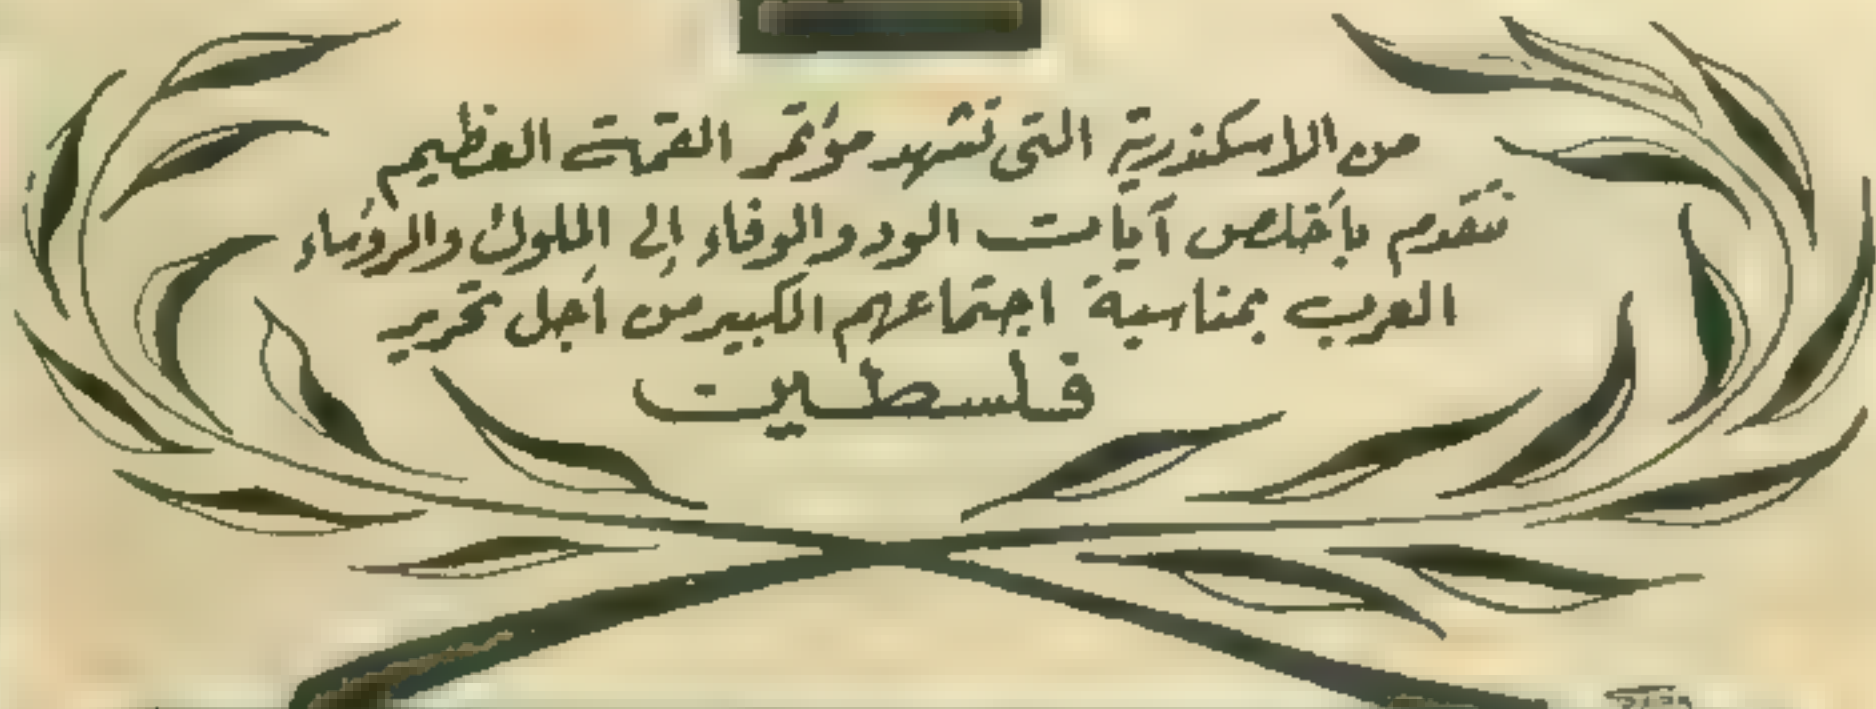 من الاسكندرية التى تشهد مؤتمر القمة العظيم
نتقدم بأخلص آيات الود والوفاء إلى الملوك والرؤساء
العرب بمناسبة اجتماعهم الكبير من أجل تحرير
فلسطين